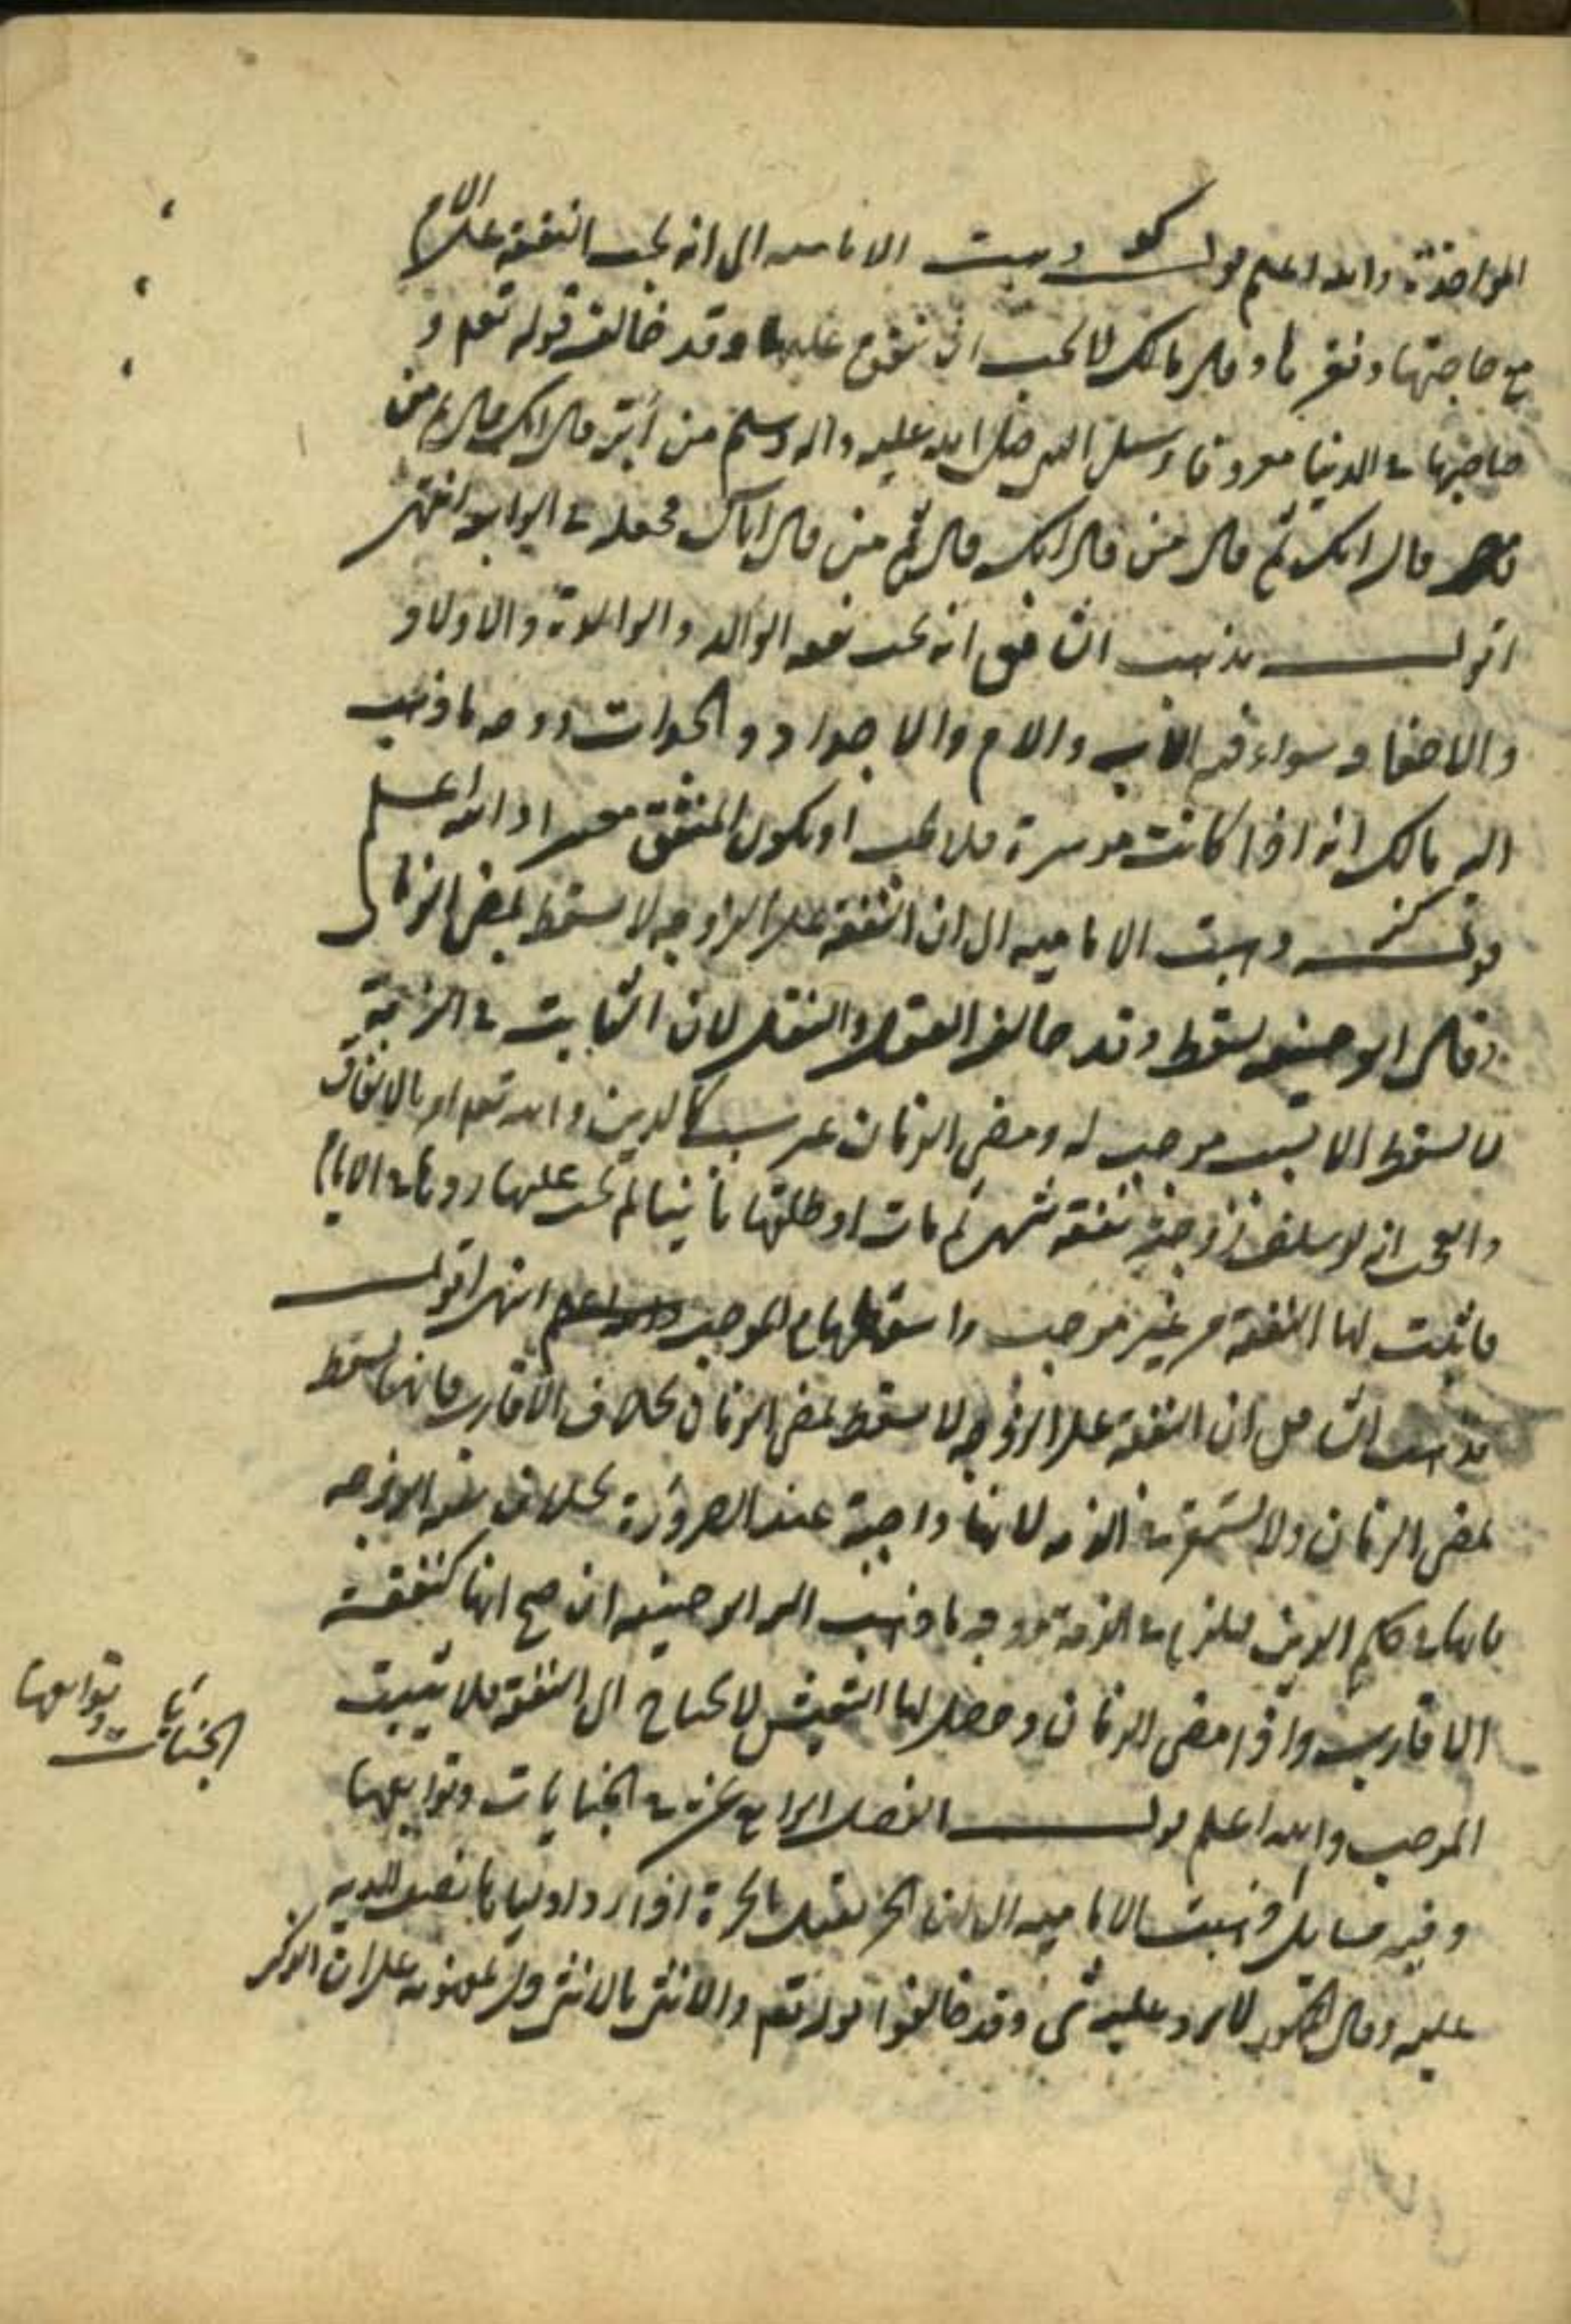 المؤاخذة والله اعلم قولـه كو ذهبت الامامية الى انه تجب النفقة على الام
مع حاجتها وفقرها وقال مالك لا تجب ان ينفق عليها وقد خالف قوله تعالى و
صاحبهما في الدنيا معروفا وسئل النبي صلى الله عليه واله وسلم من أبر قال امك قال ثم من
قال امك ثم قال من قال امك قال ثم من قال اباك فجعله في الرابعة انتهى
اقول مذهب الشافعي انه تجب نفقة الوالد والوالدة والاولاد
والاحفاد سواء فيه الاب والام والاجداد والجدات ووجه ما ذهب
اليه مالك انه اذا كانت موسرة فلا تجب او يكون المنفق معسرا والله اعلم
قولـه كز ذهبت الامامية الى ان النفقة على الزوجة لا تسقط بمضي الزمان
وقال ابو حنيفة يسقط وقد خالف العقل والنقل لان الثابت في الذمة
لا يسقط الا بسبب موجب له ومضي الزمان غير سبب كالدين والله تعالى امر بالانفاق
والعجب انه لو سلف زوجته نفقة شهر ثم مات او طلقها ثانيا لم تجب عليها رد باقي الايام
فاثبت لها النفقة من غير موجب واسقطها مع الموجب انتهى اقول
مذهب الشافعي ان النفقة على الزوجة لا تسقط بمضي الزمان بخلاف الاقارب فانها تسقط
بمضي الزمان ولا تستقر في الذمة لانها واجبة عند الضرورة بخلاف نفقة الزوجة
فانها في حكم الدين فيلزم في الذمة ووجه ما ذهب اليه ابو حنيفة ان صح انها كنفقة
الاقارب واذا مضى الزمان وحصل لها التعيش لا تحتاج الى النفقة فلا تثبت
الموجب والله اعلم قولـه الفصل الرابع عشر في الجنايات وتوابعها
وفيه مسايل أ ذهبت الامامية الى ان الحر يقتل بالحرة اذا رد اوليائها نصف الدية
عليه وقال لا يرد عليه شي وقد خالفوا قوله تعالى والانثى بالانثى ولم يعلموا على ان الذكر
الجنايات وتوابعها